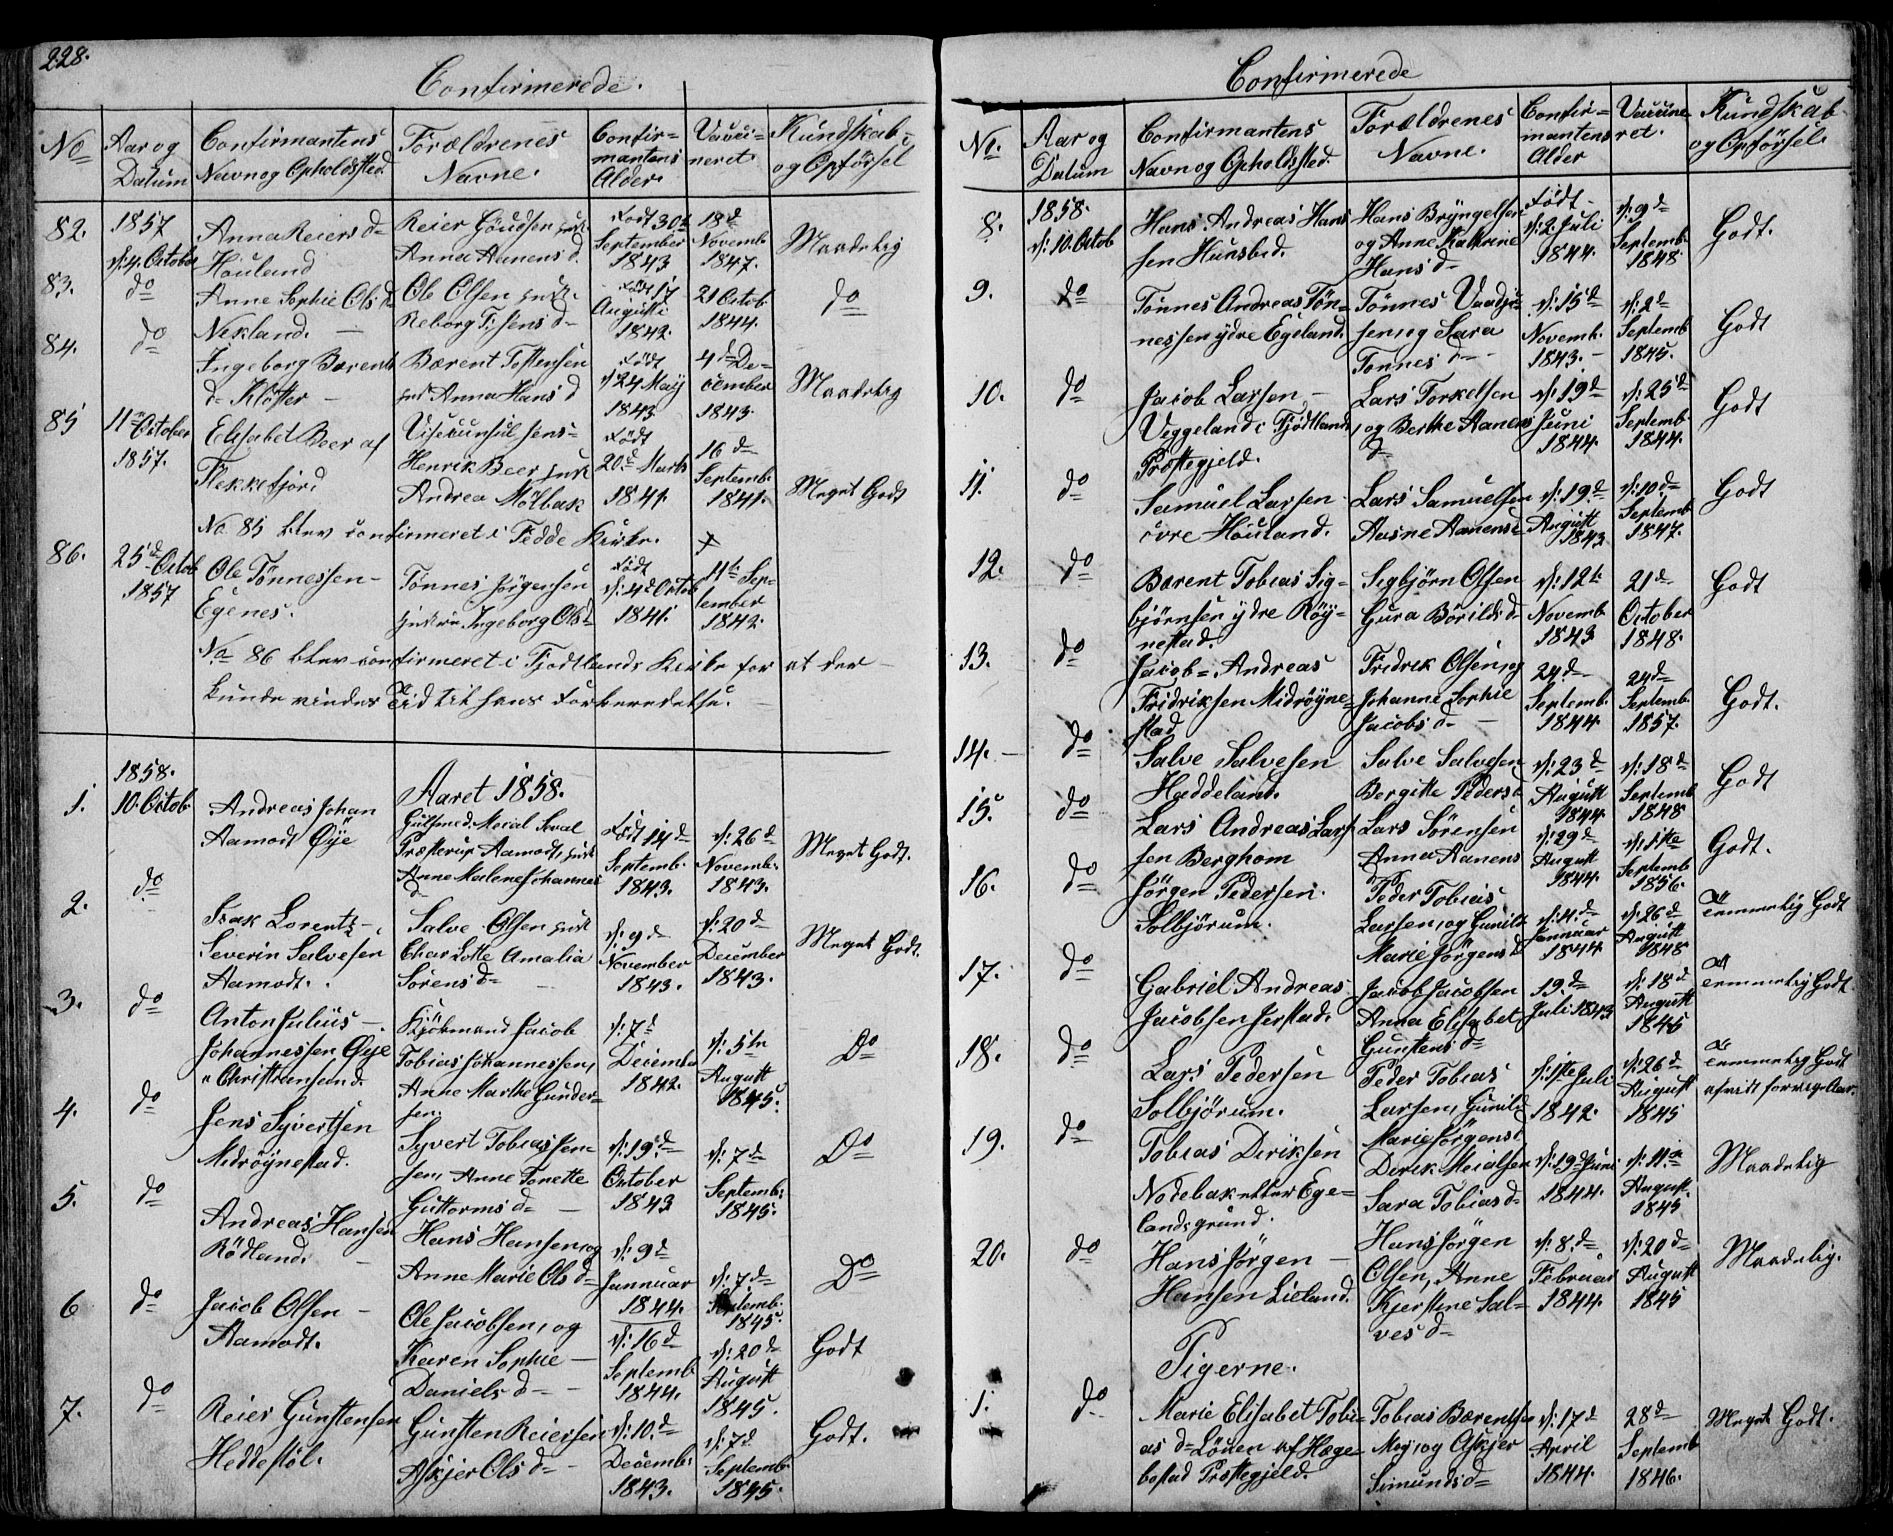 228.
Confirmerede.
No
Aar og
Datum
Confirmantens
Navn og Opholdssted.
Forældrenes
Navne.
Confir=
mantens
Alder.
Vacci=
neret.
Kundskab
og Opførsel
82.
1857
d: 4 October
Anna Reiers d=
Houland
Reier
Anna Aanens d.
Født 30te
September
1843
18d
Novemb.
1847.
Maadelig
83.
do
Anne Sophie Ols d.
Nekland.
Ole Olsen
Reborg
Født 17
Augusti
1842.
21 Octob.
1844.
do
84.
do
Ingeborg Bærents
d= Kløtter
Bærent Tostensen
Anna Hans d
Født
d 24 Maij
1843
4d De=
cember
1843.
Maadelig
85
11te October
1857.
Elisabet Beer af
Flekkefjord
Visecunsul Jens=
Henrik Beer
Andrea Mølbak
Født
20d Marts
1841.
16 d=
Septemb.
1841.
Meget Godt
No 85 blev confirmeret i Fedde Kirke.
86.
25d Octob
1857
Ole Tønnessen=
Egenes.
Tønnes Jørgensen
Ingeborg Ols d
Født
d: 4d Octob
1841.
11te Sep=
tember
1842.
No 86 blev confirmeret i Fjotlands Kirke for at der
kunde vindes Tid til hans Forberedelse.
Aaret 1858.
1.
1858.
10. Octob.
Andreas Johan
Aamodt Øye
Præsterup Aamodt,
Anne Malene Johannes
d=
Født 14d
Septemb.
1843.
d: 26d
Novemb.
1843.
Meget Godt.
2.
do
Isak Lorentz=
Severin Salvesen
Aamodt.
Salve Olsen
Charlotte Amalia
Sørens d=
d: 9d
November
1843.
d: 20d
December
1843.
Meget Godt.
3.
do
Anton Julius=
Johannessen Øye
Christiansand.
Jacob
Tobias Johannessen,
Anne Marthe Gunder=
sen.
d: 7d
Decemb.
1842.
d: 5te
August
1845.
Do
4.
do
Jens Syvertsen
Midrøynestad.
Syvert Tobiassen=
sen, Anne Tonette
Guttorms d=
d: 19d
October
1843
d: 7d
Septemb.
1845.
Do
5.
do
Andreas Hansen
Rødland.
Hans Hansen, og
Anne Marie Ols d=
d: 9d
Januar
1844.
d: 7d
Septemb.
1845.
Do
6
do
Jacob Olsen
Aamodt.
Ole Jacobsen, og
Karen Sophie
Daniels d=
d: 16d
Septemb
1844.
d: 20d
August
1845.
Godt
7.
do
Reier Gunstensen
Heddestøl.
Gunsten Reiersen
Askjer Ols d=
d: 10.d
Decemb.
1843.
d: 7d
Septemb.
1845.
Godt.
Confirmerede
No.
Aar og
Datum
Confirmantens
Navn og Opholdssted.
Forældrenes
Navne.
Confir=
mantens
Alder
Vaccine
ret.
Kundskab
og Opførsel.
8.
1858.
d: 10. Octob
Hans Andreas Hans
sen Hunsbed.
Hans Bryngelsen
og Anne Kathrine
Hans d=
Født
d: 2 Juli
1844.
d: 9d
Septemb.
1848
Godt.
9.
do
Tønnes Andreas Tøn=
nessen ydre Egeland.
Tønnes
sen, og Sara
Tønnes d=
d: 15d
Novemb.
1843.
d: 2d
Septemb
1845.
Godt
10.
do
Jacob Larsen
Veggeland i Fjodtlands
Præstegjeld.
Lars Torkelsen
og Berthe Aanens
d=
d: 19d
Juni
1844.
d: 25d
Septemb
1844.
Godt
11.
do
Samuel Larsen
øvre Houland.
Lars Samuelsen
Aasne Aanensd
d: 19d
August
1843
d: 10d=
Septemb
1847.
Godt
12.
do
Bærent Tobias Sig=
bjørnsen ydre Røy=
nestad.
Sigbjørn Olsen
Gura Børilds d=
d: 12te
Novemb
1843
21d
October
1848.
Godt
13.
do
Jacob Andreas
Fridriksen Midrøyne=
stad
Fridrik Olsen, og
Johanne Sophie
Jacobs d=
24d=
Septemb.
1844.
24d=
Septemb.
1857.
Godt.
14.
do
Salve Salvesen
Haddeland.
Salve Salvesen
Bergitte Peders d
d: 23d
August
1844.
d: 18d
Septemb
1848
Godt
15.
do
Lars Andreas Lars
sen Berghom
Lars Sørensen
Anna Aanens
d=
d: 29d
August
1844.
d: 1ste
Septemb
1856.
Godt.
16.
do
Jørgen Pedersen
Solbjørum.
Peder Tobias
Larsen, og Gunild
Marie Jørgens d
d: 4.d
Januar
1844
d: 26d
August
1848
Temmelig Godt
17.
do
Gabriel Andreas
Jacobsen Jerstad.
Jacob Jacobsen
Anna Elisabet
Gunstens d=
19.d
Juli 1843
d: 18d
August
1845
Temmelig Godt
18.
do
Lars Pedersen
Solbjørum.
Peder Tobias
Larsen, Gunild
Marie Jørgens d
d: 1ste Juli
1842.
d: 26d
August
1845
Temmelig Godt
afviist forrige Aar.
19.
do
Tobias Diriksen
Nodebak etter Ege=
lands grund.
Dirik Meialsen
Sara Tobias d=
d: 19d Juni
1844.
d: 11.d
August.
1845
Maadelig
20.
do
Hans Jørgen
Hansen Lieland.
Hans Jørgen
Olsen, Anne
Kjerstine Sal=
ves d=
d: 8.d=
Februar
1844.
d: 20d=
August
1845
Maadelig.
Pigerne.
1.
do
Marie Elisabet Tobi=
as d= Løuen af Hæge=
bostad Præstegjeld.
Tobias Bærentsen
Moi, og Askjer
Simunds d=
d: 17d
April
1844.
28d=
Septemb
1846.
Meget Godt.